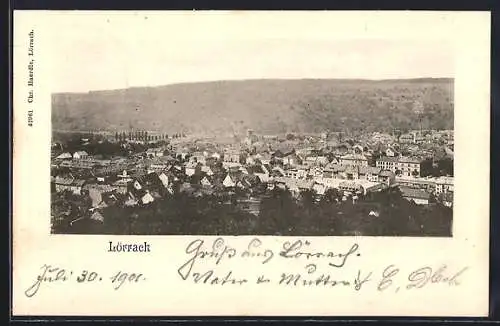 42961 Chr. Haerdle, Lörrach.
Lörrach
Gruß aus Lörrach
Juli 30. 1901. Vater & Mutter & C.